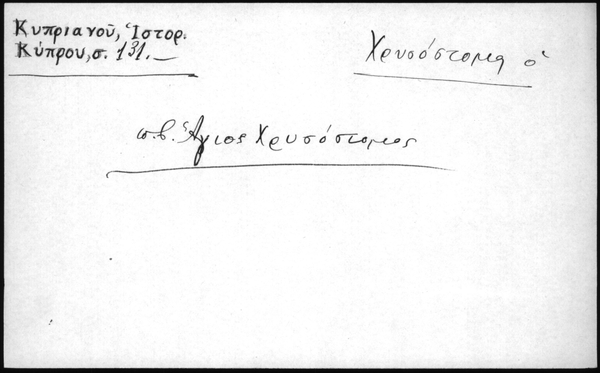 Κυπριανοῦ, Ἱστορ.
Κύπρου, σ. 131.
Χρυσόστομος ὁ
π.β. Ἅγιος Χρυσόστομος